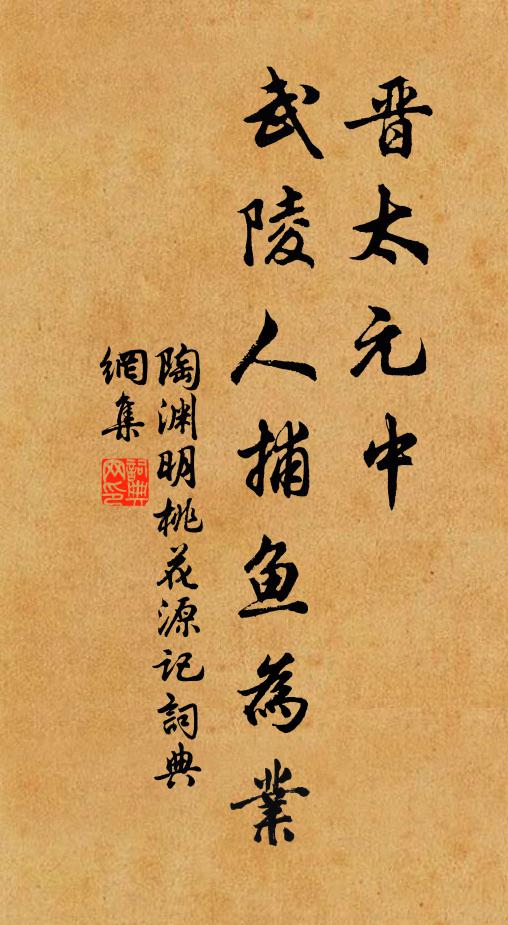 晋太元中
武陵人捕鱼為業
陶渊明桃花源记詞典
網集
詞典
网印